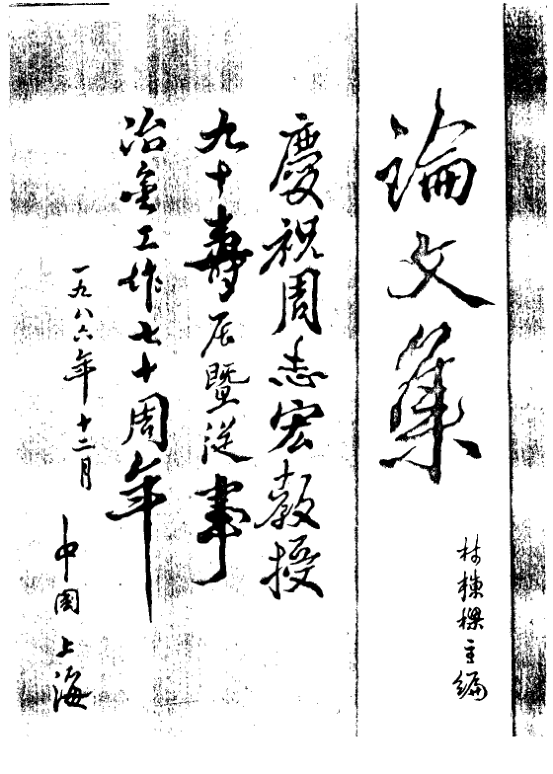 論文集
林棟樑主編
慶祝周志宏教授
九十壽辰暨從事
冶金工作七十周年
一九八六年十二月
中国上海